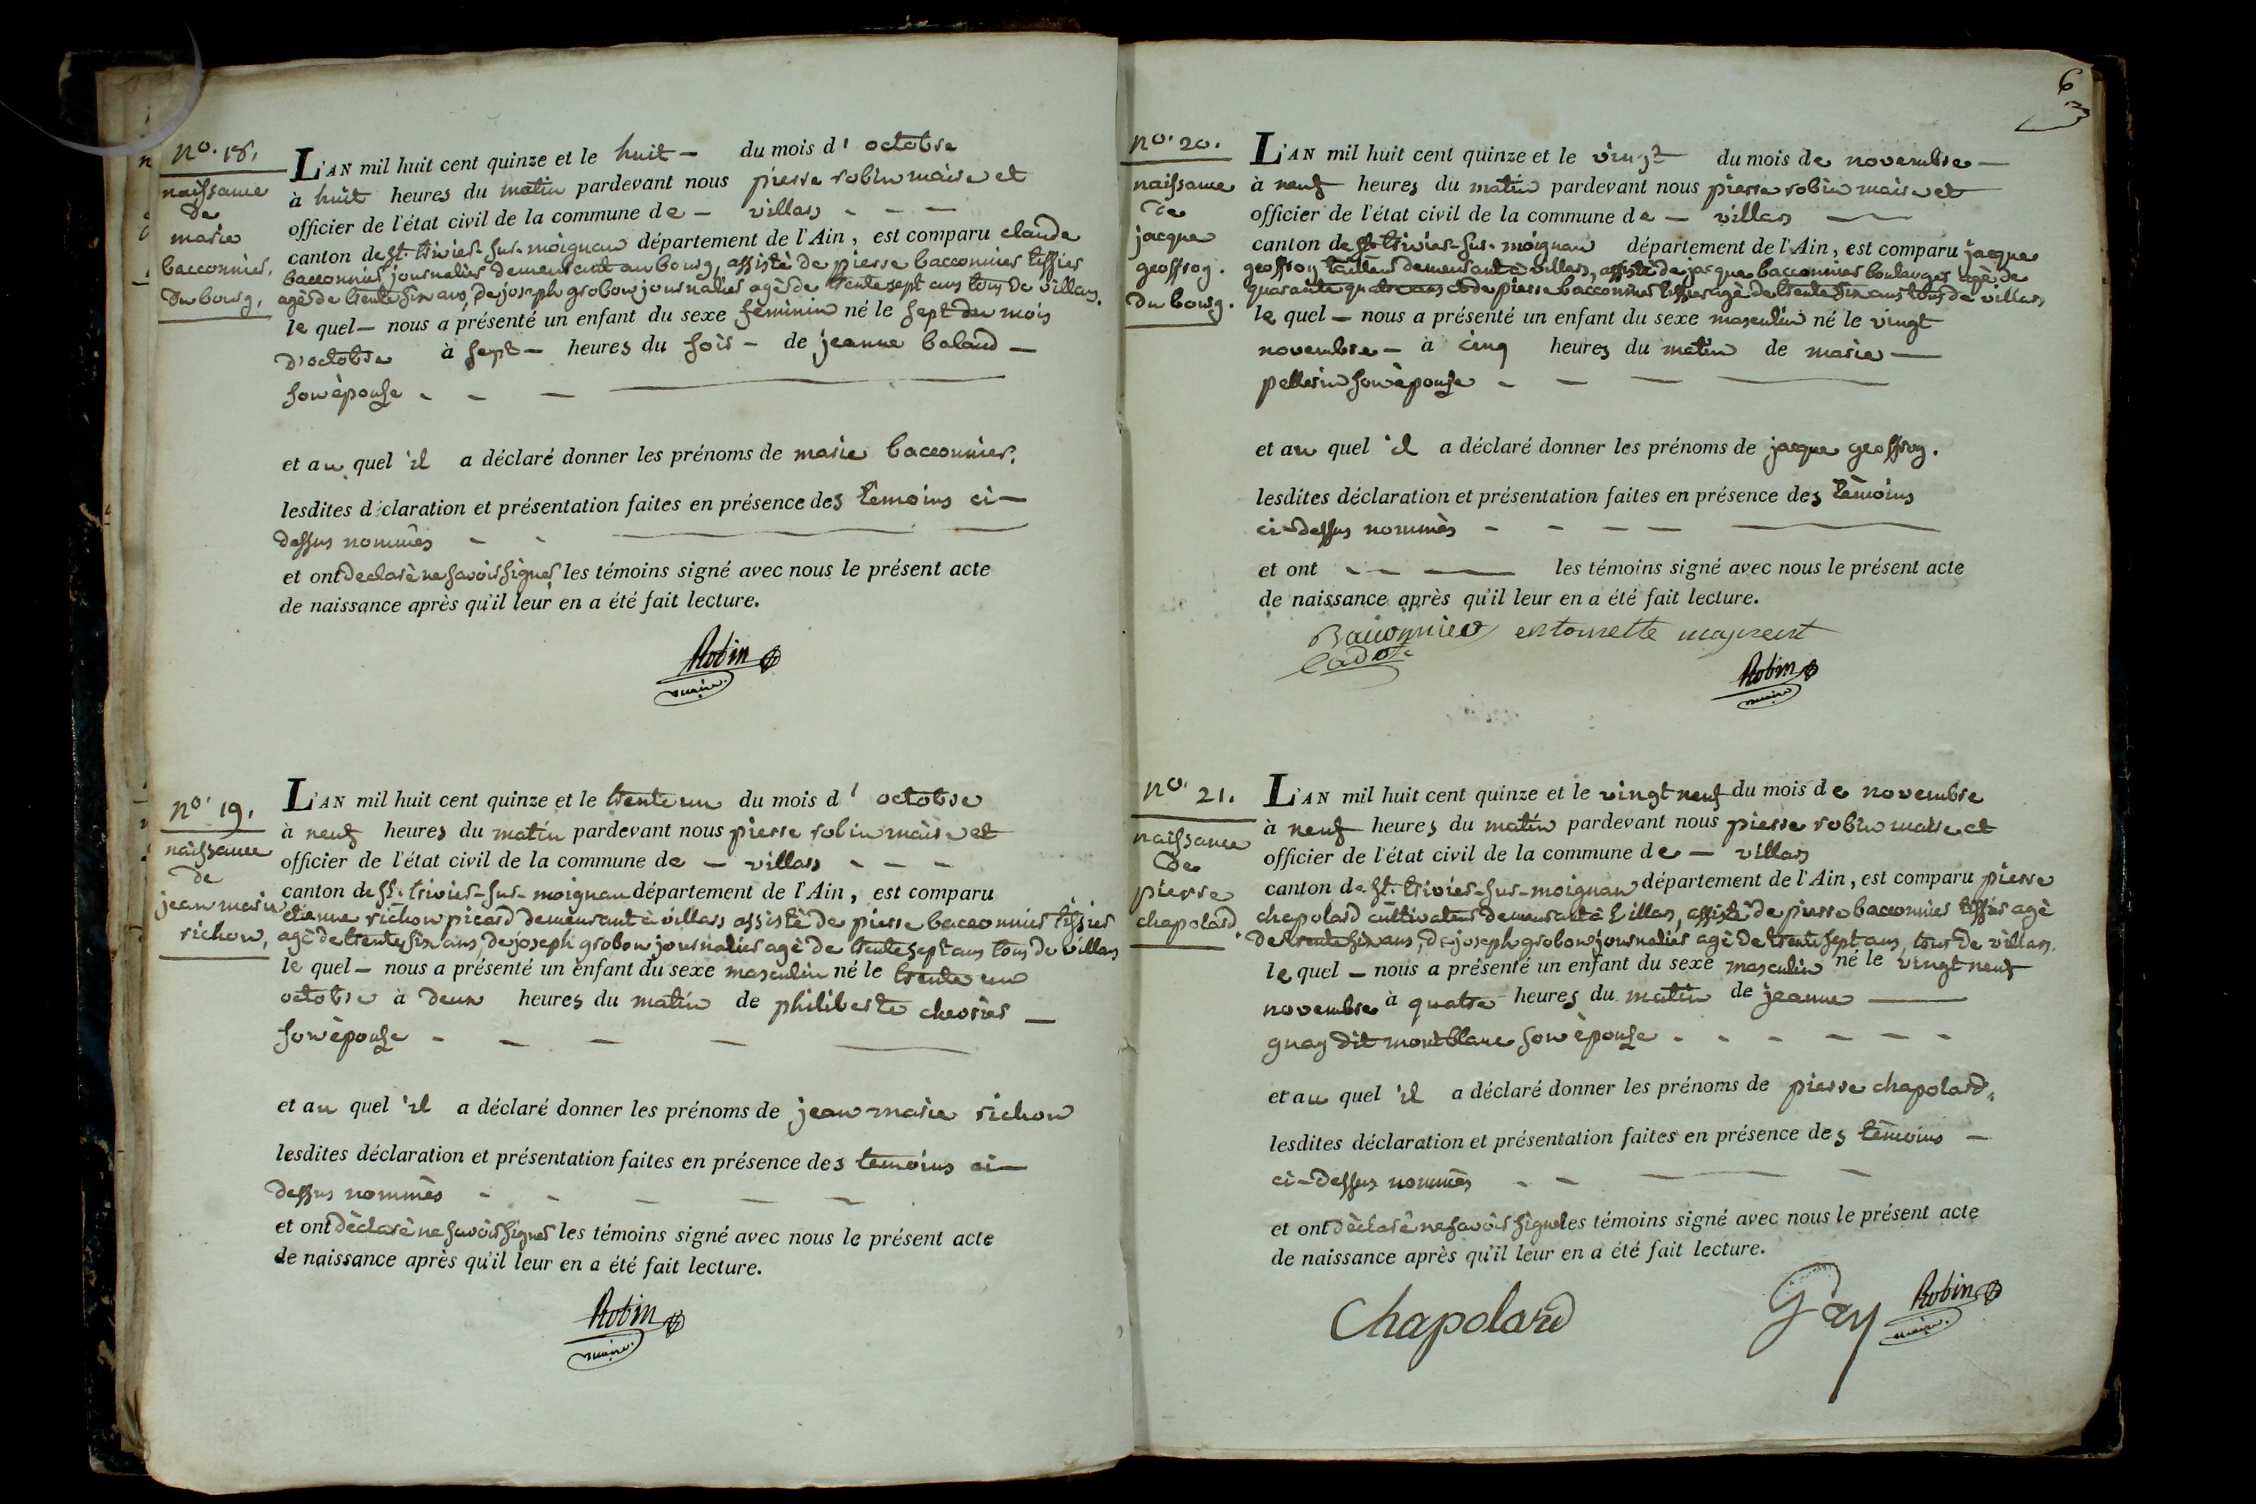 no. 18.
naissance
de
marie
bacconnier,
du bourg,
L'AN mil huit cent quinze et le huit - du mois d' octobre
à huit heures du matin pardevant nous pierre robin maire et
officier de l'état civil de la commune de - villars - - -
canton de st. trivier-sur-moignan département de l'Ain, est comparu claude
bacconnier journalier demeurant au bourg, assisté de pierre bacconnier tissier
agé de trente six ans, de joseph grobon journalier agé de trente sept ans tous de villars.
le quel - nous a présenté un enfant du sexe féminin né le sept du mois
d'octobre à sept - heures du soir - de jeanne baland -
son épouse - - -
et au quel il a déclaré donner les prénoms de marie bacconnier.
lesdites déclaration et présentation faites en présence des temoins ci-
dessus nommés - -
et ont declaré ne savoir signer les témoins signé avec nous le présent acte
de naissance après qu'il leur en a été fait lecture.
Robin
maire.
no. 19.
naissance
de
jean marie
richon,
L'AN mil huit cent quinze et le trente un du mois d' octobre
à neuf heures du matin pardevant nous pierre robin maire et
officier de l'état civil de la commune de - villars - - -
canton de st. trivier-sur-moignan département de l'Ain, est comparu
etienne richon picard demeurant à villars assisté de pierre bacconnier tissier
agé de trente six ans, de joseph grobon journalier agé de trente sept ans tous de villars
le quel - nous a présenté un enfant du sexe masculin né le trente un
octobre à deux heures du matin de philiberte chevrier -
son épouse - - - -
et au quel il a déclaré donner les prénoms de jean marie richon
lesdites déclaration et présentation faites en présence des temoins ci-
dessus nommés - - - - -
et ont déclaré ne savoir signer les témoins signé avec nous le présent acte
de naissance après qu'il leur en a été fait lecture.
Robin
maire.
6
no. 20.
naissance
de
jacque
geoffroy.
du bourg.
L'AN mil huit cent quinze et le vingt du mois de novembre -
à neuf heures du matin pardevant nous pierre robin maire et
officier de l'état civil de la commune de - villars -
canton de st trivier-sur-moignan département de l'Ain, est comparu jacque
geoffroy tailleur demeurant à villars, assisté de jacque bacconnier boulanger agé de
quarante quatre ans et de pierre bacconnier tissier agé de trente six ans tous de villars
le quel - nous a présenté un enfant du sexe masculin né le vingt
novembre - à cinq heures du matin de marie -
pellerin son épouse - - -
et au quel il a déclaré donner les prénoms de jacque geoffroy.
lesdites déclaration et présentation faites en présence des témoins
ci-dessus nommés - - - -
et ont - - - les témoins signé avec nous le présent acte
de naissance après qu'il leur en a été fait lecture.
Bacconnier
cadot
Robin
maire
no. 21.
naissance
de
pierre
chapolard.
L'AN mil huit cent quinze et le vingt neuf du mois de novembre
à neuf heures du matin pardevant nous pierre robin maire et
officier de l'état civil de la commune de - villars
canton de st. trivier-sur-moignan département de l'Ain, est comparu pierre
chapolard cultivateur demeurant à villars, assisté de pierre bacconnier tissier agé
de trente six ans, de joseph grobon journalier agé de trente sept ans, tous de villars.
le quel - nous a présenté un enfant du sexe masculin né le vingt neuf
novembre à quatre heures du matin de jeanne -
guay dit montblanc son épouse - - - - - -
et au quel il a déclaré donner les prénoms de pierre chapolard.
lesdites déclaration et présentation faites en présence des témoins -
ci-dessus nommés - - - -
et ont déclaré ne savoir signer les témoins signé avec nous le présent acte
de naissance après qu'il leur en a été fait lecture.
Chapolard
Gay
Robin
maire.